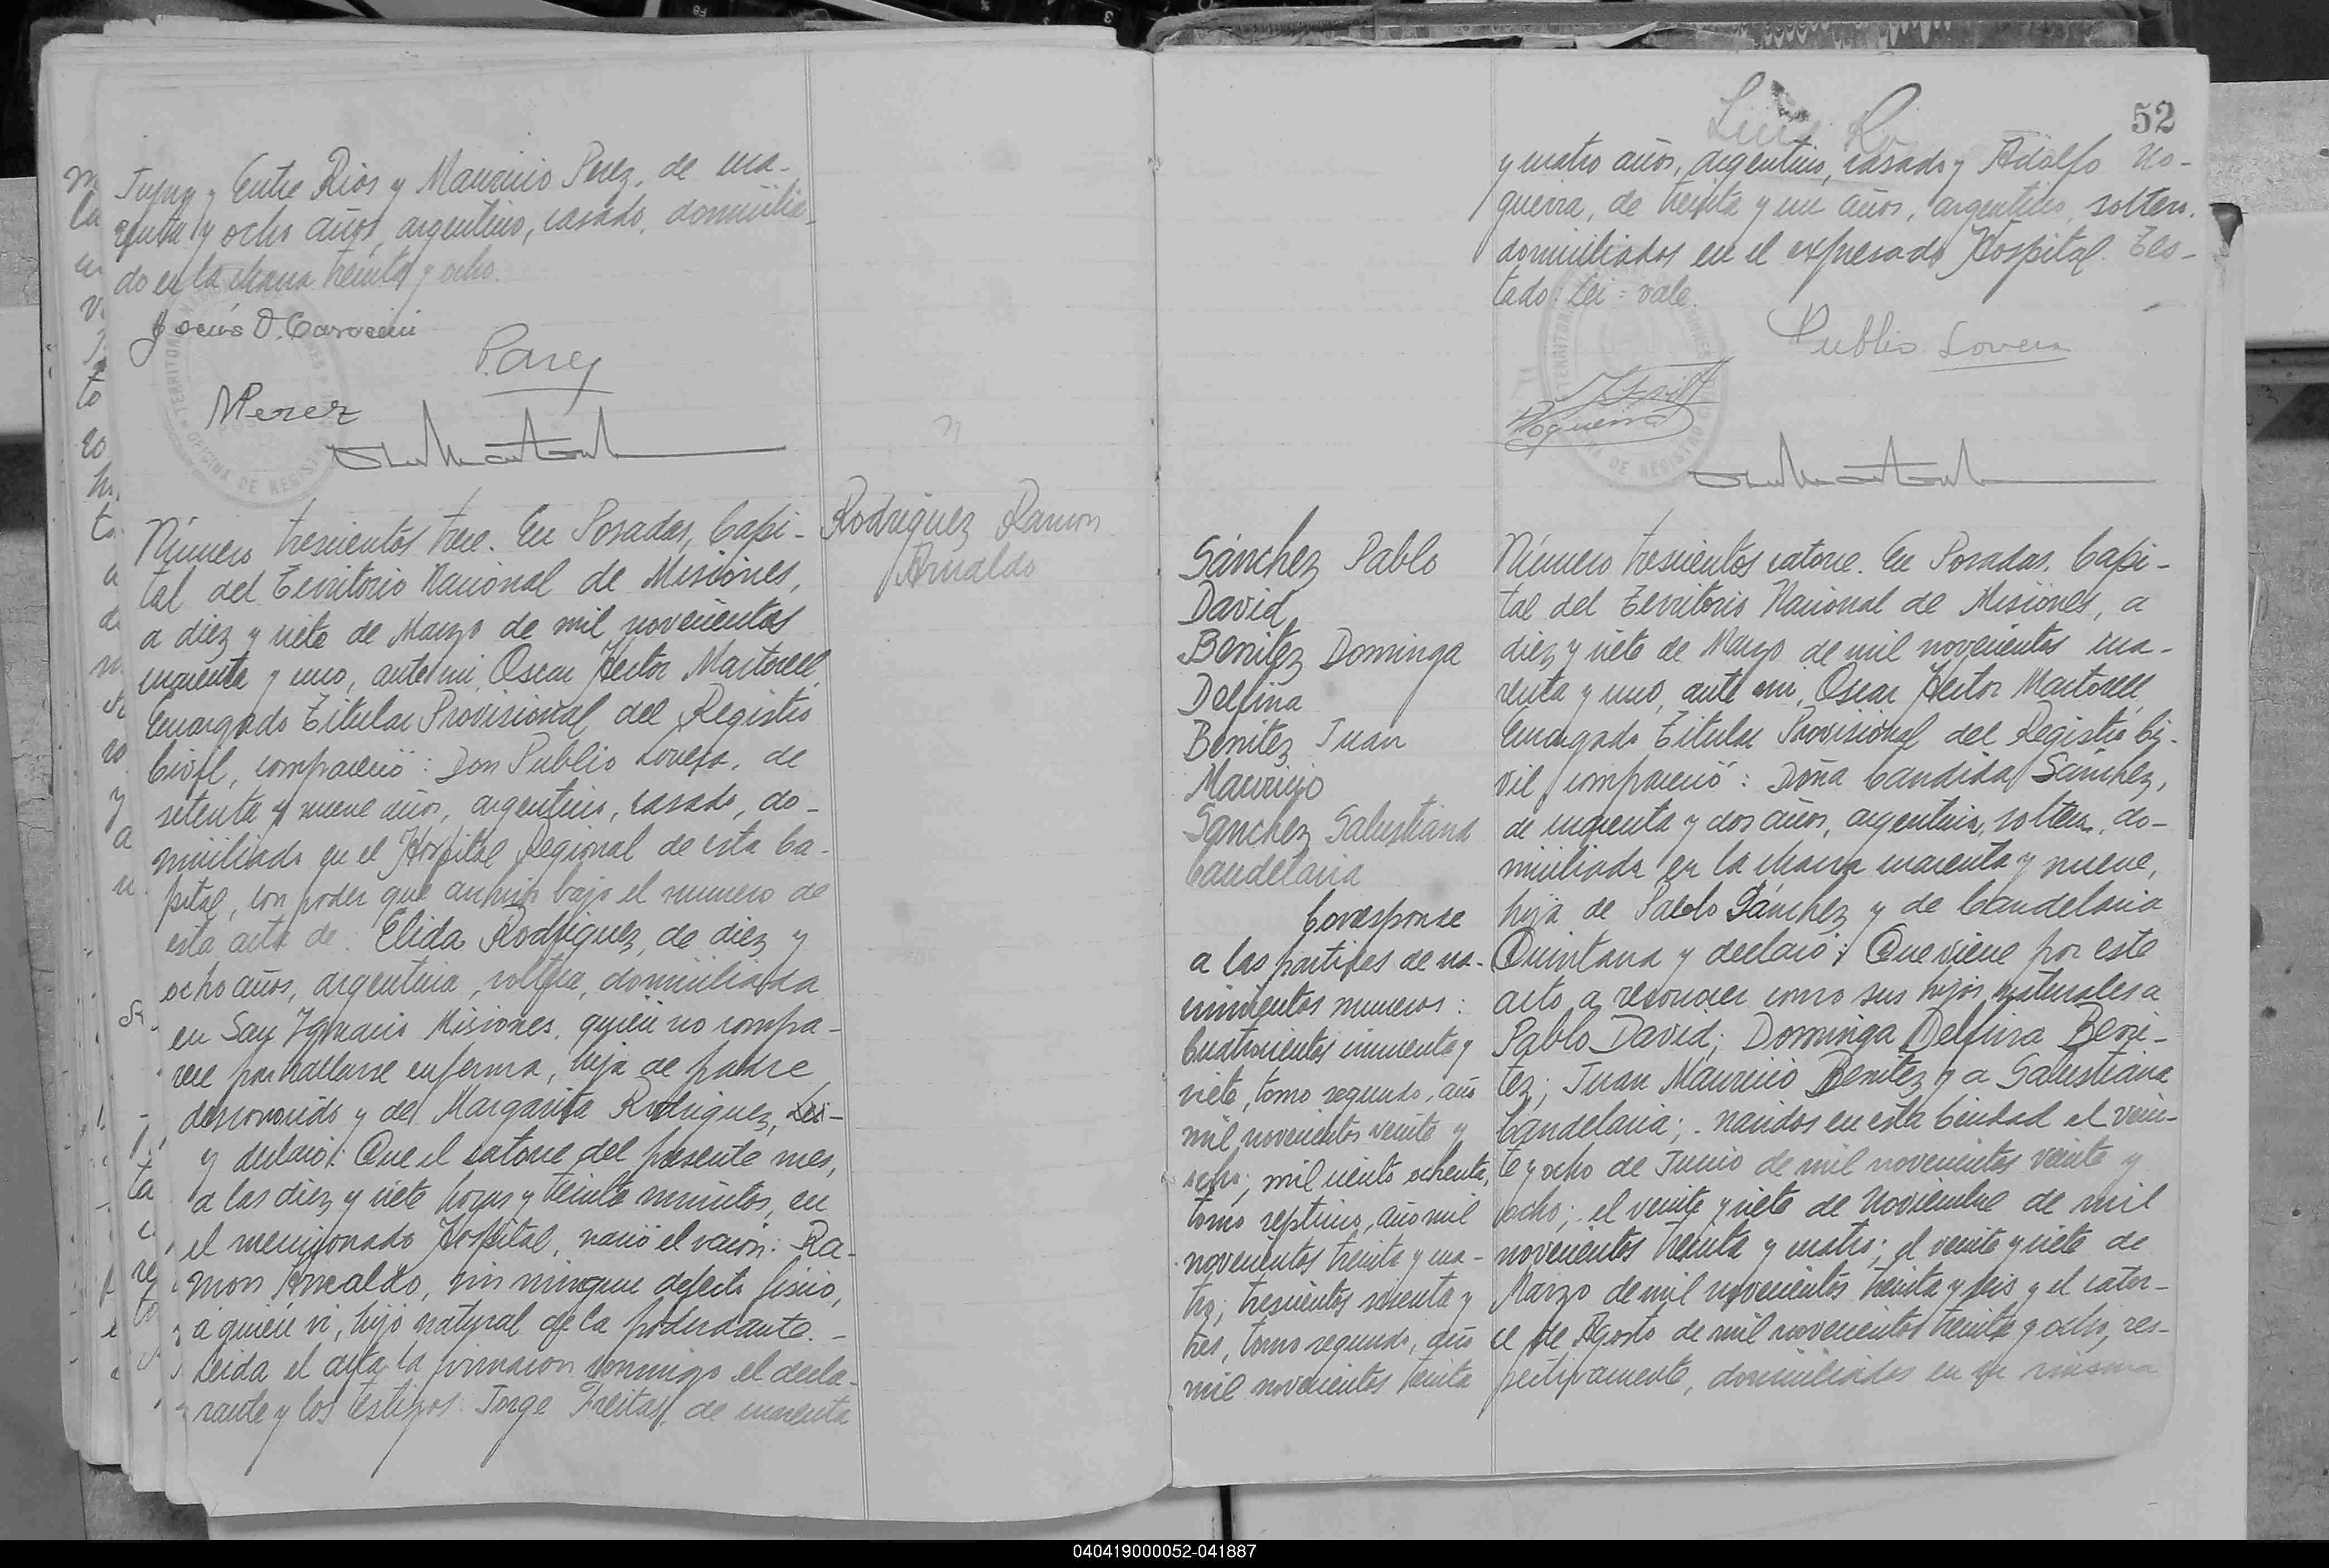 Jujuy y Entre Rios y Mauricio Perez, de cua-
renta y ocho años, argentino, casado, domicilia-
do en la chacra treinta y ocho.
Jesús D. Caroseni
Parey
MPerez
Rodriguez Ramon
Arnaldo
Número trescientos trece. En Posadas, Capi-
tal del Territorio Nacional de Misiones,
a diez y siete de Marzo de mil novecientos
cuarenta y uno, ante mi, Oscar Hector Martorell,
Encargado Titular Provisional del Registro
Civil, compareció: Don Publio Lovera, de
setenta y nueve años, argentino, casado, do-
miciliado en el Hospital Regional de esta Ca-
pital, con poder que archivo bajo el numero de
esta acta de: Elida Rodriguez, de diez y
ocho años, argentina, soltera, domiciliada
en San Ignacio Misiones, quien no compa-
rece por hallarse enferma, hija de padre
desconocido y de Margarita Rodriguez,
y declaró: Que el catorce del presente mes,
a las diez y siete horas y treinta minutos, en
el mencionado Hospital, nació el varón: Ra-
mon Arnaldo, sin ningun defecto fisico,
a quien vi, hijo natural de la poderdante.-
Leida el acta la firmaron conmigo el decla-
rante y los testigos: Jorge Freitas, de cuarenta
52
y cuatro años, argentino, casado y Adolfo No-
gueira, de treinta y un años, argentino, soltero,
domiciliados en el expresado Hospital. Tes-
tado: Lei = vale.
Publio Lovera
Nogueira
Sánchez Pablo
David,
Benitez Dominga
Delfina
Benitez Juan
Mauricio
Sanchez Salustiana
Candelaria
Corresponde
a las partidas de na-
cimientos numeros:
Cuatrocientos cincuenta y
siete, tomo segundo, año
mil novecientos veinte y
ocho; mil ciento ochenta,
tomo septimo, año mil
novecientos treinta y cua-
tro; trescientos sesenta y
tres, tomo segundo, año
mil novecientos treinta
Número trescientos catorce. En Posadas, Capi-
tal del Territorio Nacional de Misiones, a
diez y siete de Marzo de mil novecientos cua-
renta y uno, ante mi, Oscar Hector Martorell,
Encargado Titular Provisional del Registro Ci-
vil compareció: Doña Candida Sánchez,
de cincuenta y dos años, argentina, soltera, do-
miciliada en la chacra cuarenta y nueve,
hija de Pablo Sánchez y de Candelaria
Quintana y declaró: Que viene por este
acto a reconocer como sus hijos naturales a
Pablo David; Dominga Delfina Beni-
tez; Juan Mauricio Benitez y a Salustiana
Candelaria; nacidos en esta Ciudad el vein-
te y ocho de Junio de mil novecientos veinte y
ocho; el veinte y siete de Noviembre de mil
novecientos treinta y cuatro; el veinte y siete de
Marzo de mil novecientos treinta y seis y el cator-
ce de Agosto de mil novecientos treinta y ocho, res-
pectivamente, domiciliados en la misma
040419000052-041887